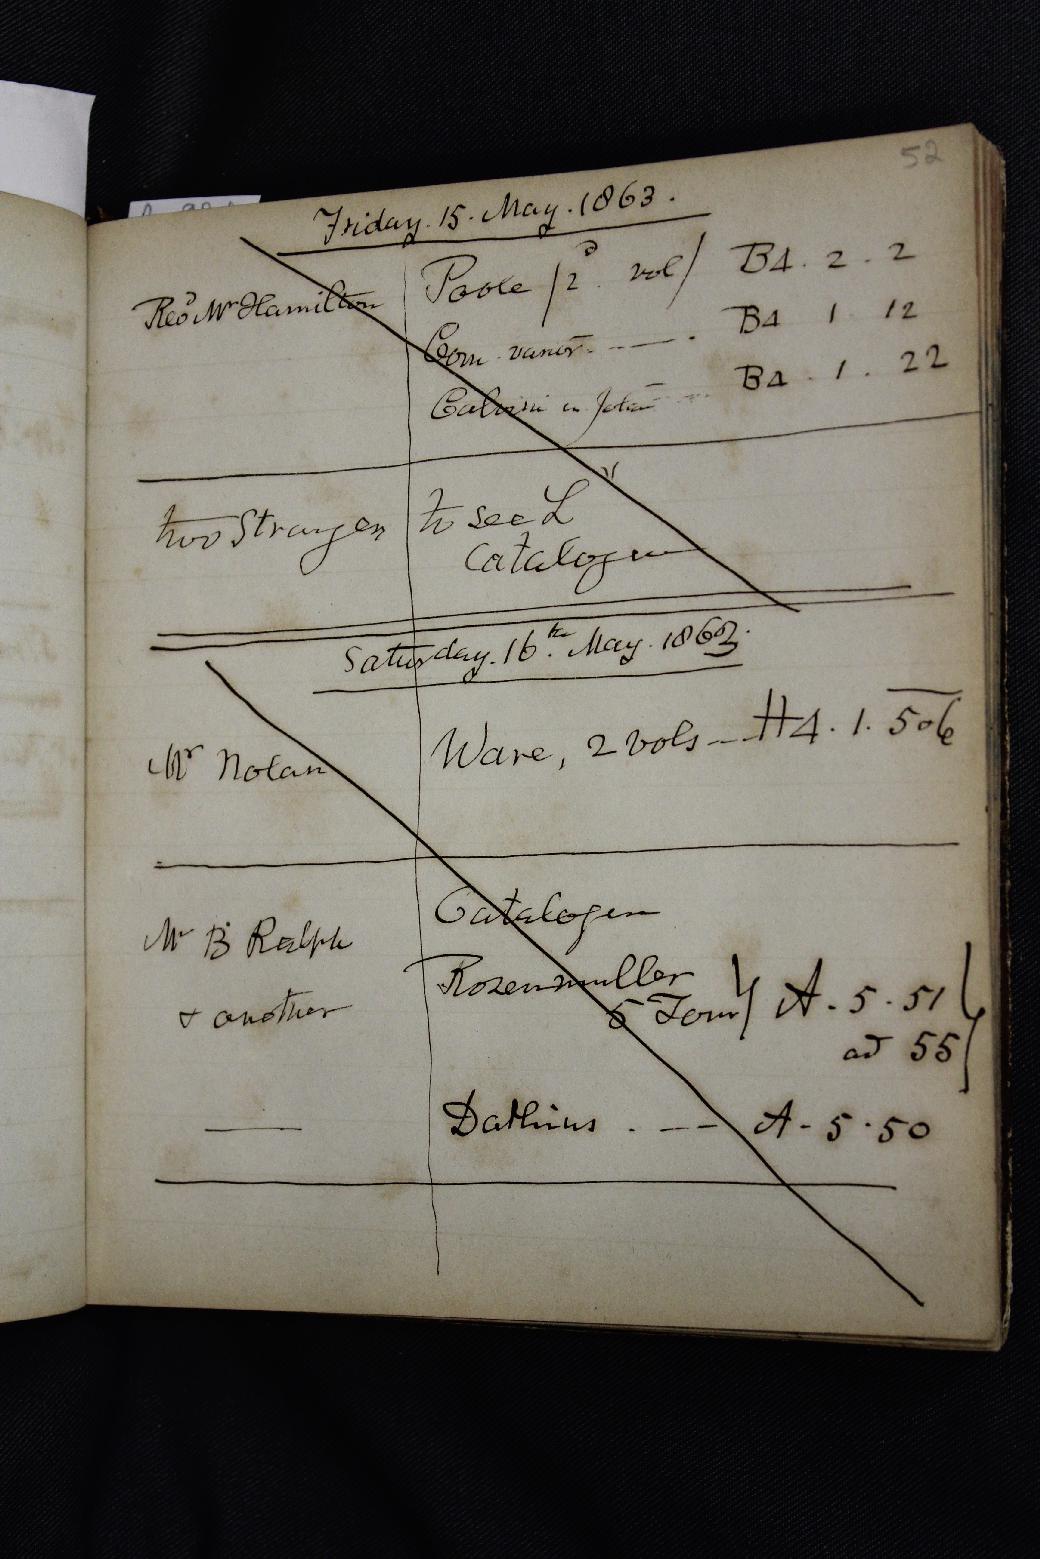 52
Friday. 15. May. 1863.
Revd Mr Hamilton Poole / 2d vol / B4. 2. 2
Com. varior. B4 1 12
Calvini in B4. 1. 22
two Strangers to see L
Catalogue
Saturday. 16th. May. 1863.
Mr Nolan Ware, 2 vols - H4. 1. 5 o 6
Mr B Ralph Catalogen
& another Rozenmuller
5 Tom } A. 5. 51
ad 55
Dathius . -- A - 5. 50